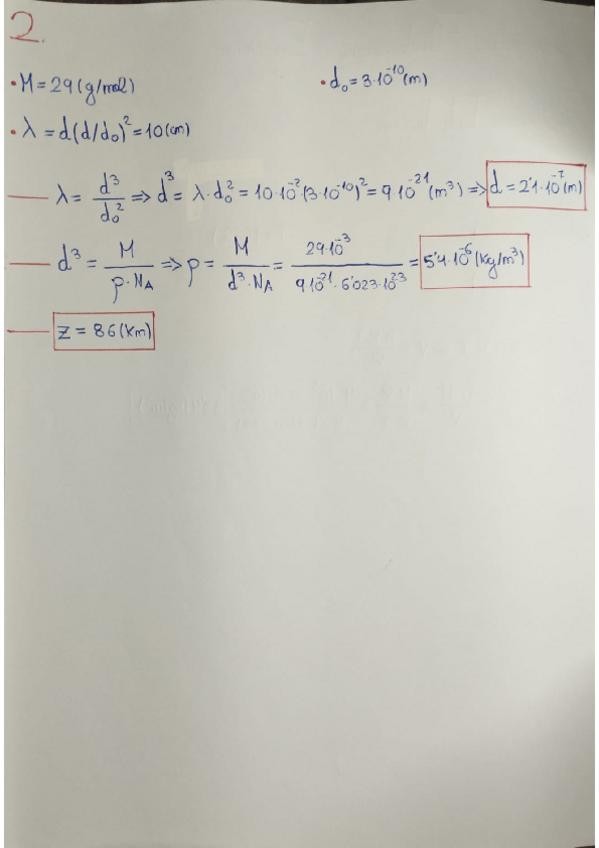 2.
• M = 29 (g/mol) • d₀ = 3·10⁻¹⁰ (m)
• λ = d(d/d₀)² = 10 (cm)
λ = d³/d₀² ⇒ d³ = λ·d₀² = 10·10⁻²·(3·10⁻¹⁰)² = 9·10⁻²¹ (m³) ⇒ d = 2'1·10⁻⁷ (m)
d³ = M/ρ·N_A ⇒ ρ = M/d³·N_A = 29·10⁻³/9·10⁻²¹·6'023·10²³ = 5'4·10⁻⁶ (kg/m³)
z = 86 (km)